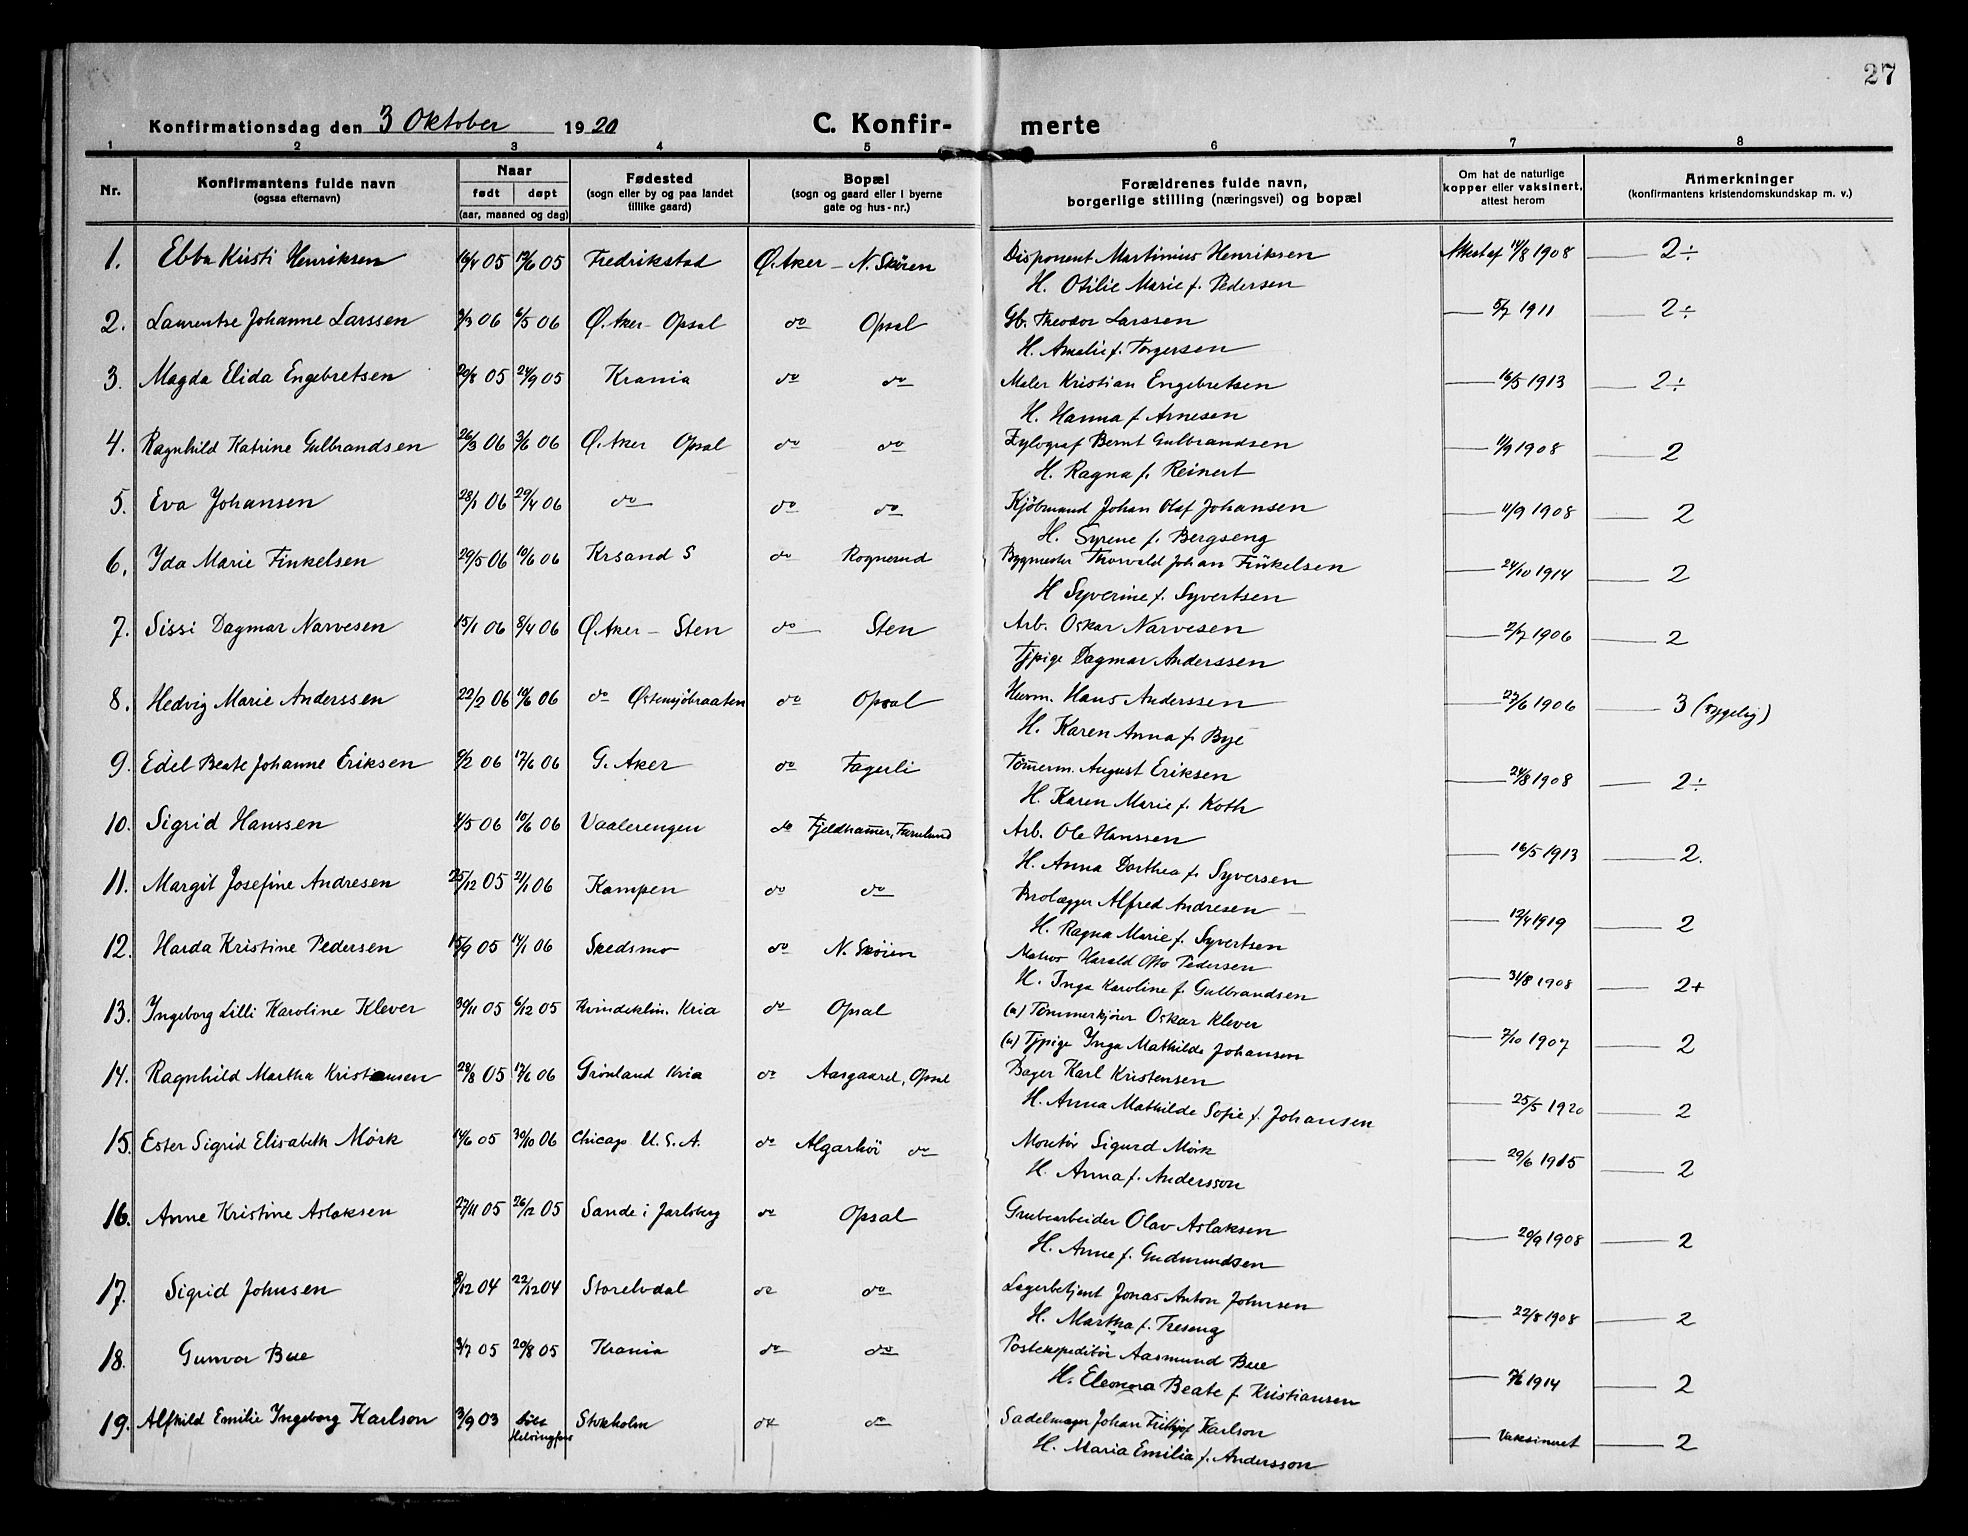 27
Konfirmationsdag den 3 Oktober 1920 C. Konfir- merte
1 2 3 4 5 6 7 8
Nr. Konfirmantens fulde navn (ogsaa efternavn) Naar født døpt (aar, maaned og dag) Fødested (sogn eller by og paa landet tillike gaard) Bopæl (sogn og gaard eller i byerne gate og hus-nr.) Forældrenes fulde navn, borgerlige stilling (næringsvei) og bopæl Om hat de naturlige kopper eller vaksinert, attest herom Anmerkninger (konfirmantens kristendomskundskap m. v.)
1. Ebba Kirsti Henriksen 16/4 05 12/6 05 Fredrikstad Ø. Aker - N. Skøien Disponent Martinius Henriksen Attest af 14/8 1908 — 2÷
H. Otilie Marie f. Pedersen
2. Laurentse Johanne Larssen 9/3 06 6/5 06 Ø. Aker - Opsal do Opsal Gb. Theodor Larssen — 5/7 1911 — 2÷
H. Amalie f. Torgersen
3. Magda Elida Engebretsen 20/8 05 24/9 05 Krania do do Maler Kristian Engebretsen — 16/5 1913 — 2÷
H. Hanna f Arnesen
4. Ragnhild Katrine Gulbrandsen 26/3 06 3/6 06 Ø. Aker Opsal do do Xylograf Bernt Gulbrandsen — 11/9 1908 — 2
H. Ragna f. Reinert
5. Eva Johansen 28/1 06 29/4 06 do do do Kjøbmand Johan Olaf Johansen — 11/9 1908 — 2
H. Syrene f. Bergseng
6. Yda Marie Finkelsen 29/5 06 10/6 06 Krsand S do Rognerud Bygmester Thorvald Johan Finkelsen — 24/10 1914 — 2
H Syverine f. Syvertsen
7. Sissi Dagmar Narvesen 15/1 06 8/4 06 Ø. Aker - Sten do Sten Arb. Oskar Narvesen — 2/7 1906 — 2
Tjpige Dagmar Anderssen
8. Hedvig Marie Anderssen 22/2 06 10/6 06 do Østensjøbraaten do Opsal Hans Anderssen — 27/6 1906 — 3 (sygelig)
H. Karen Anna f. Bye
9. Edel Beate Johanne Eriksen 9/2 06 17/6 06 G. Aker do Fagerli Tømerm. August Eriksen — 24/8 1908 — 2÷
H. Karen Marie f. Koth
10. Sigrid Hanssen 4/5 06 10/6 06 Vaalerengen do Fjeldhamer, Furulund Arb. Ole Hanssen — 16/5 1913 — 2.
H. Anna Dorthea f. Syversen
11. Margit Josefine Andresen 25/12 05 21/1 06 Kampen do do Brolægger Alfred Andresen — 12/4 1919 — 2
H. Ragna Marie f. Syvertsen
12. Harda Kristine Pedersen 15/9 05 14/1 06 Skedsmo do N. Skøien Matros Harald Otto Pedersen — 31/8 1908 — 2+
H. Inga Karoline f. Gulbrandsen
13. Ingeborg Lilli Karoline Klever 30/11 05 6/12 05 Kvindeklin. Kria do Opsal (u) Tømmerkjører Oskar Klever — 7/10 1907 — 2
(u) Tjpige Ynga Mathilde Johansen
14. Ragnhild Martha Kristiansen 28/8 05 17/6 06 Grønland Kria do Aasgaard, Opsal Bager Karl Kristensen — 25/5 1920 — 2
H. Anna Mathilde Sofie f. Johansen
15. Ester Sigrid Elisabeth Mørk 14/6 05 30/10 06 Chicago U.S.A. do Algarhöi do Montør Sigurd Mørk — 29/6 1915 — 2
H. Anna f. Andersson
16. Anne Kristine Aslaksen 27/11 05 26/12 05 Sande i Jarlsberg do Opsal Grubearbeider Olav Aslaksen — 20/9 1908 — 2
H. Anne f. Gudmundsen
17. Sigrid Johnsen 8/12 04 22/12 04 Storelvdal do do Lagerbetjent Jonas Anton Johnsen — 22/8 1908 — 2
H. Martha f. Treseng
18. Gunvor Bue 3/7 05 20/8 05 Krania do do Postekspeditør Aasmund Bue — 7/6 1914 — 2
H. Eleonora Beate f Kristiansen
19. Alfhild Emilie Ingeborg Karlson 3/9 03 Helsingfors Stokholm do do Sadelmager Johan Fithjof Karlson — Vaksineret — 2
H. Maria Emilia f. Andersson